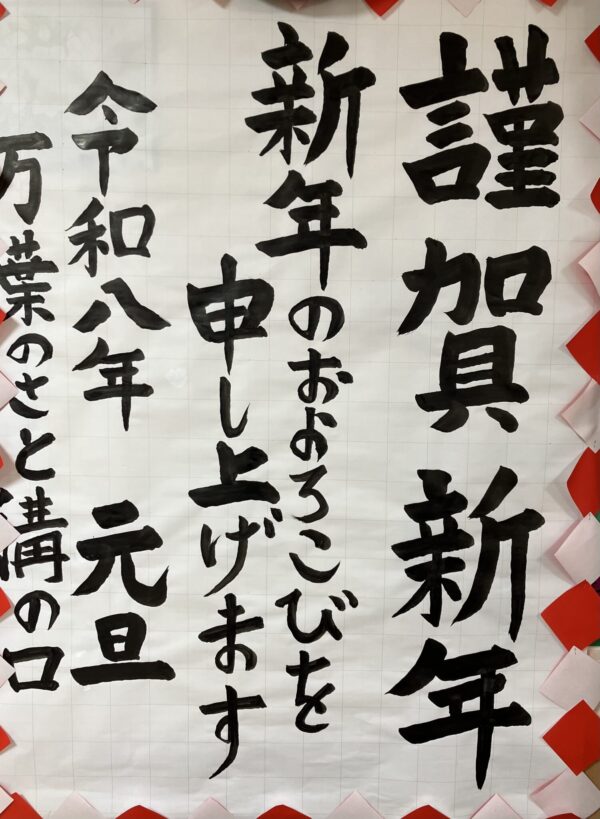 謹賀新年
新年のおよろこびを
申し上げます
令和八年 元旦
万葉のさと溝の口